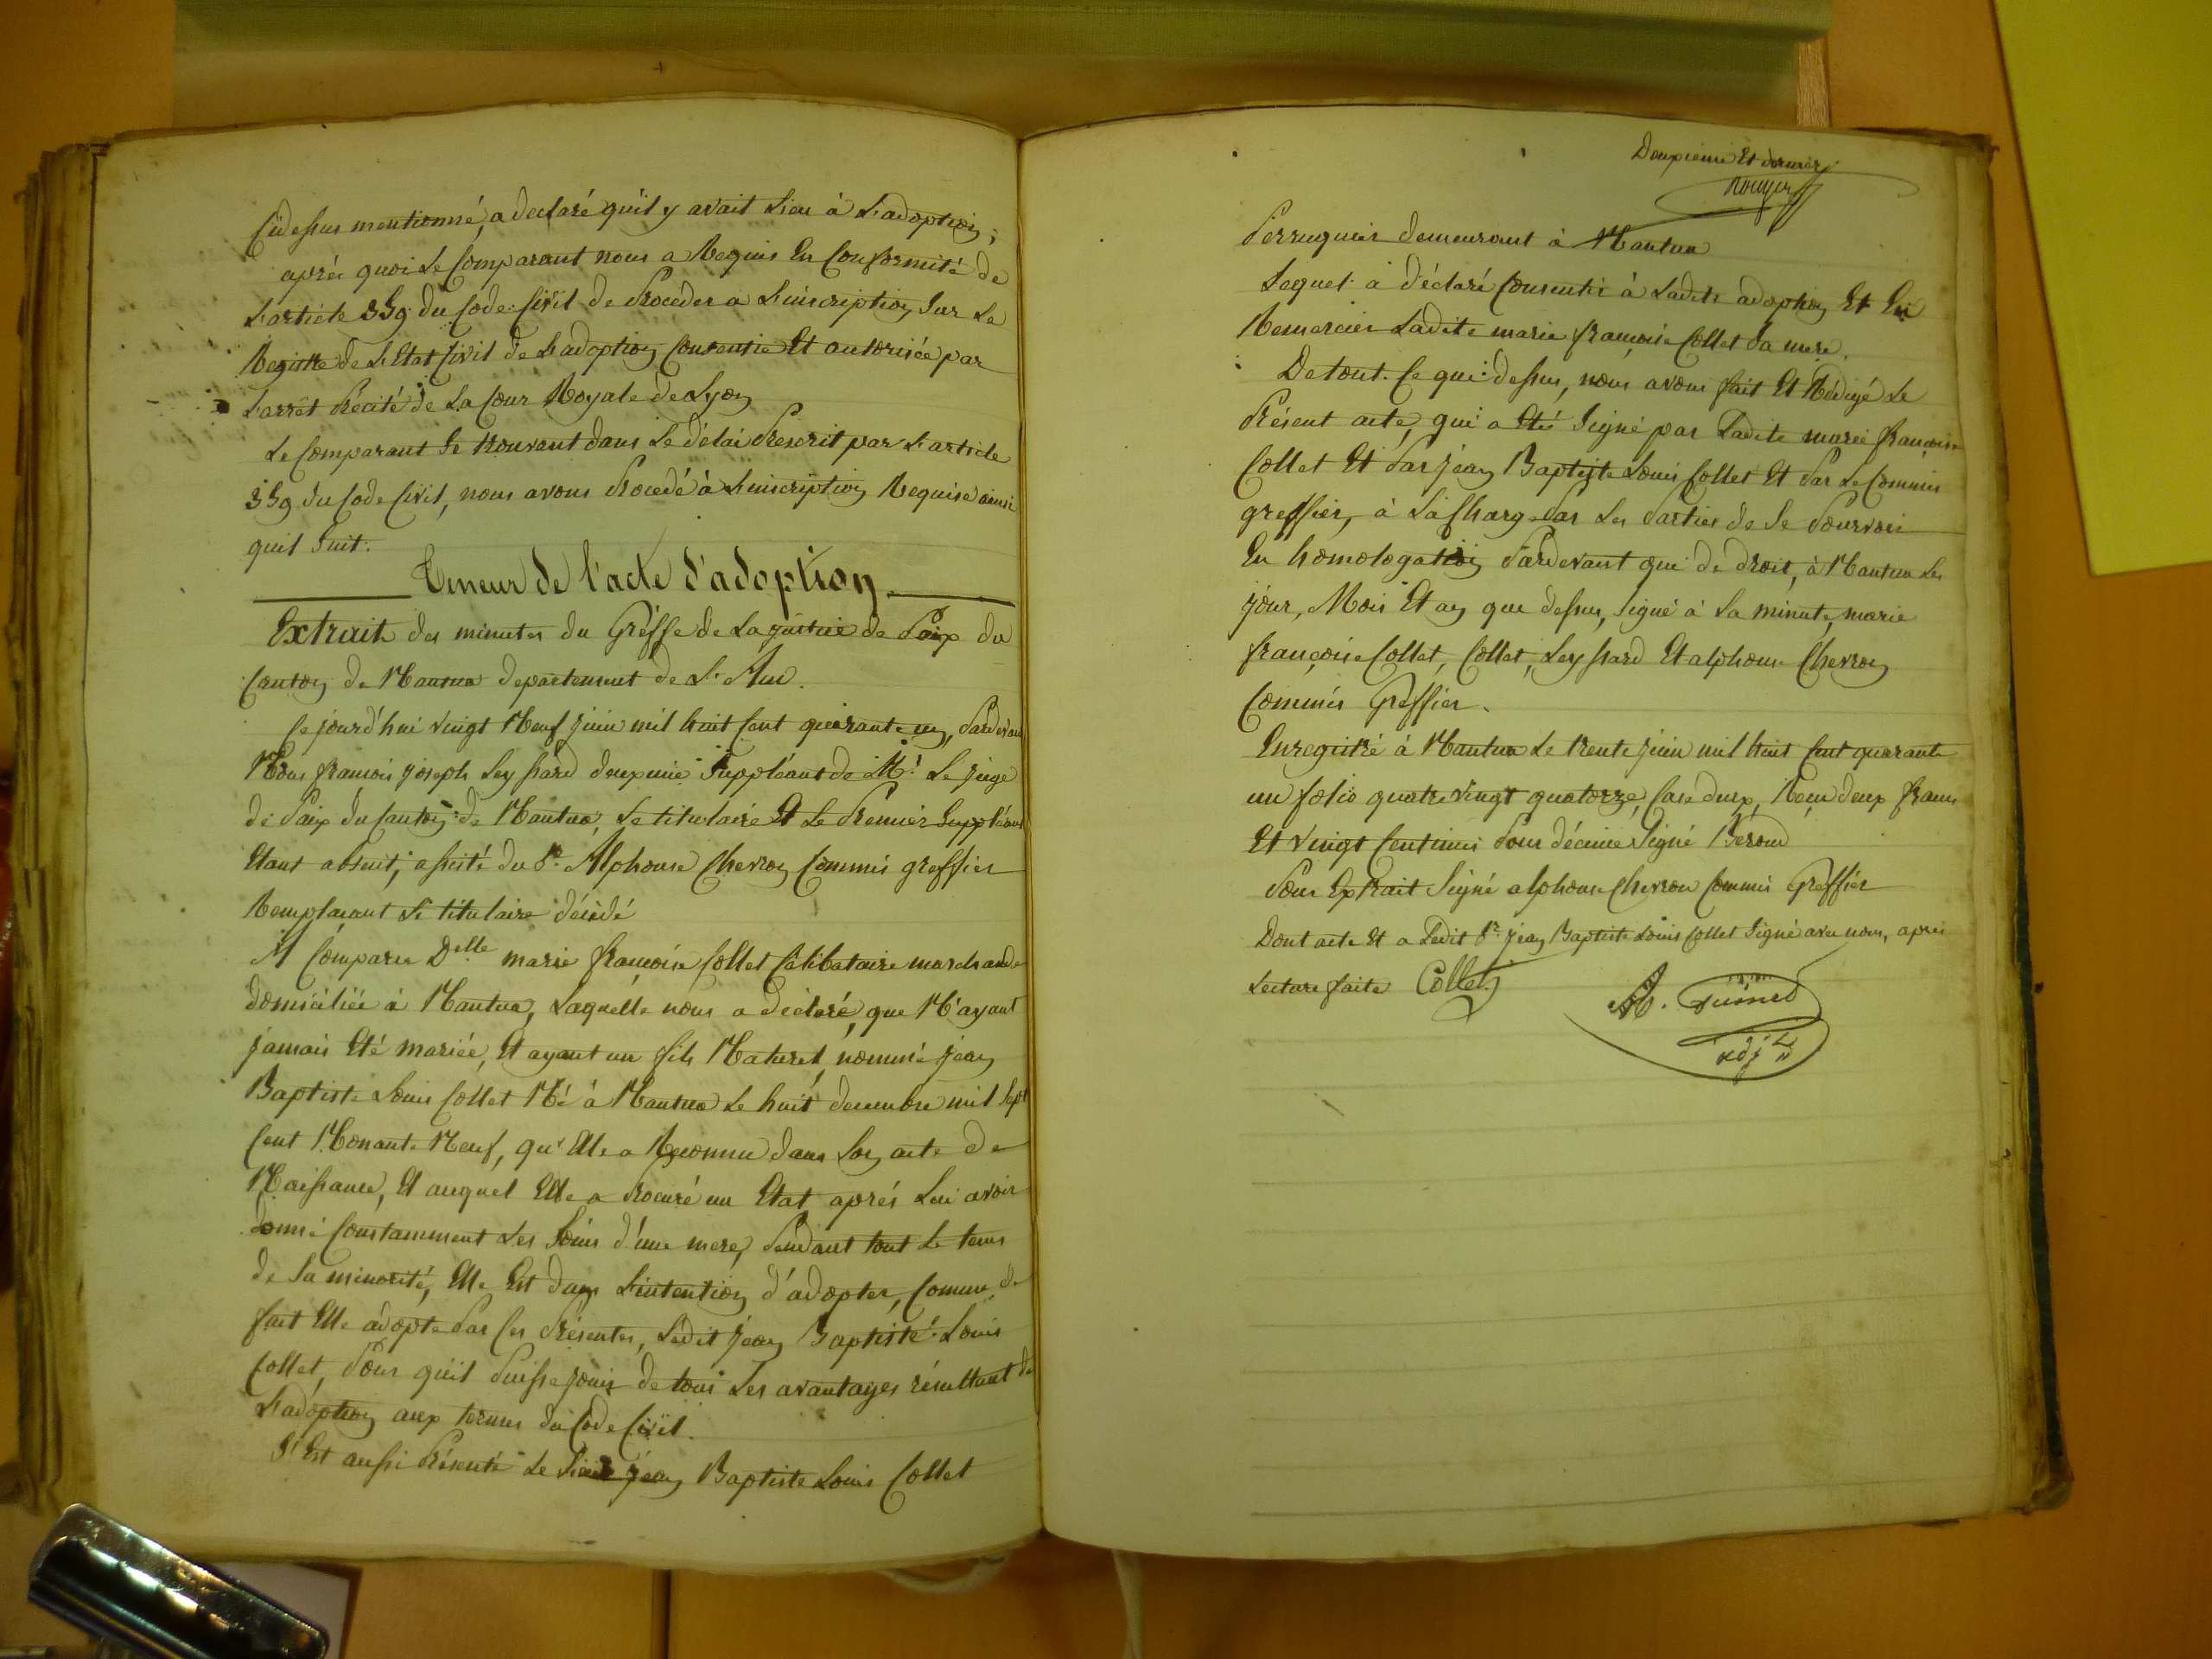 Cidessus mentionné, a declaré qu'il y avait Lieu à L'adoption;
après quoi Le Comparant nous a Requis En Conformité de
L'article 359 du Code Civil de Procéder a L'inscription Sur Le
Registre de L'Etat Civil de L'adoption Consentie Et autorisée par
L'arrêt Précité de La Cour Royale de Lyon
Le Comparant Se trouvant dans Le délai Prescrit par L'article
359 du Code Civil, nous avons Procédé à L'inscription Requise ainsi
quil Suit:
Teneur de l'acte d'adoption
Extrait des minutes du Greffe de La justice de Paix du
Canton de Nantua departement de L'Ain.
Ce jourd'hui vingt Neuf juin mil huit Cent quarante un, Pardevant
Nous françois joseph Leyssard deuxieme Suppléant de Mr. Le juge
de Paix du Canton de Nantua, Le titulaire Et Le Premier Suppléant
Etant absent, assisté du Sr. Alphonse Chevron Commis greffier
Remplacant Le titulaire décédé
A Comparu Delle marie françoise Collet Célibataire marchande
domiciliée à Nantua, Laquelle nous a déclaré, que N'ayant
jamais Eté mariée, Et ayant un fils Naturel, nommé jean
Baptiste Louis Collet Né à Nantua Le huit decembre mil Sept
Cent Nonante Neuf, qu'Elle a Reconnu dans Son acte de
Naissance, Et auquel Elle a Procuré un Etat après Lui avoir
donné Constamment Les Soins d'une mere, Pendant tout Le tems
de Sa minorité, Elle Est dans L'intention d'adopter, Comme de
fait Elle adopte Par Ces Présentes, Ledit jean Baptiste Louis
Collet, Pour qu'il Puisse jouir de tous Les avantages résultant de
L'adoption aux termes du Code Civil.
S'Est aussi Présenté Le Sieur jean Baptiste Louis Collet
Deuxieme Et dernier
Perruquier demeurant à Nantua
Lequel a déclaré Consentir à Ladite adoption Et En
Remercier Ladite marie françoise Collet Sa mere.
De tout Ce qui dessus, nous avons fait Et Rédigé Le
Présent acte, qui a Eté Signé par Ladite marie françoise
Collet Et Par jean Baptiste Louis Collet Et Par Le Commis
greffier, à La Charge Par Les Parties de Se Pourvoir
En homologation Pardevant qui de droit, à Nantua Les
jour, Mois Et an que dessus, Signé à La minute, marie
françoise Collet, Collet, Leyssard Et alphonse Chevron
Commis Greffier.
Enregistré à Nantua Le trente juin mil huit Cent quarante
un folio quatre vingt quatorze, Case deux, Reçu deux francs
Et vingt Centimes Pour décime Signé Béroud
Pour Extrait Signé alphonse Chevron Commis Greffier
Dont acte Et a Ledit Sr. jean Baptiste Louis Collet Signé avec nous, après
Lecture faite Collet
adjt